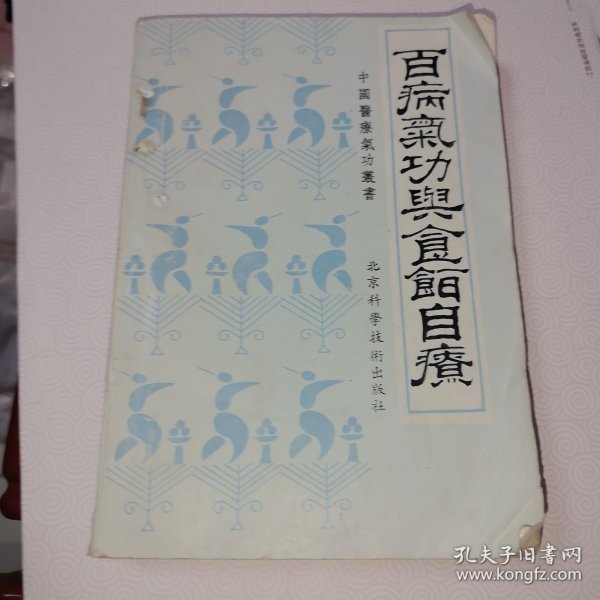 百病氣功與食餌自療
中國醫療氣功叢書
北京科學技術出版社
孔夫子旧书网
www.kongfz.com